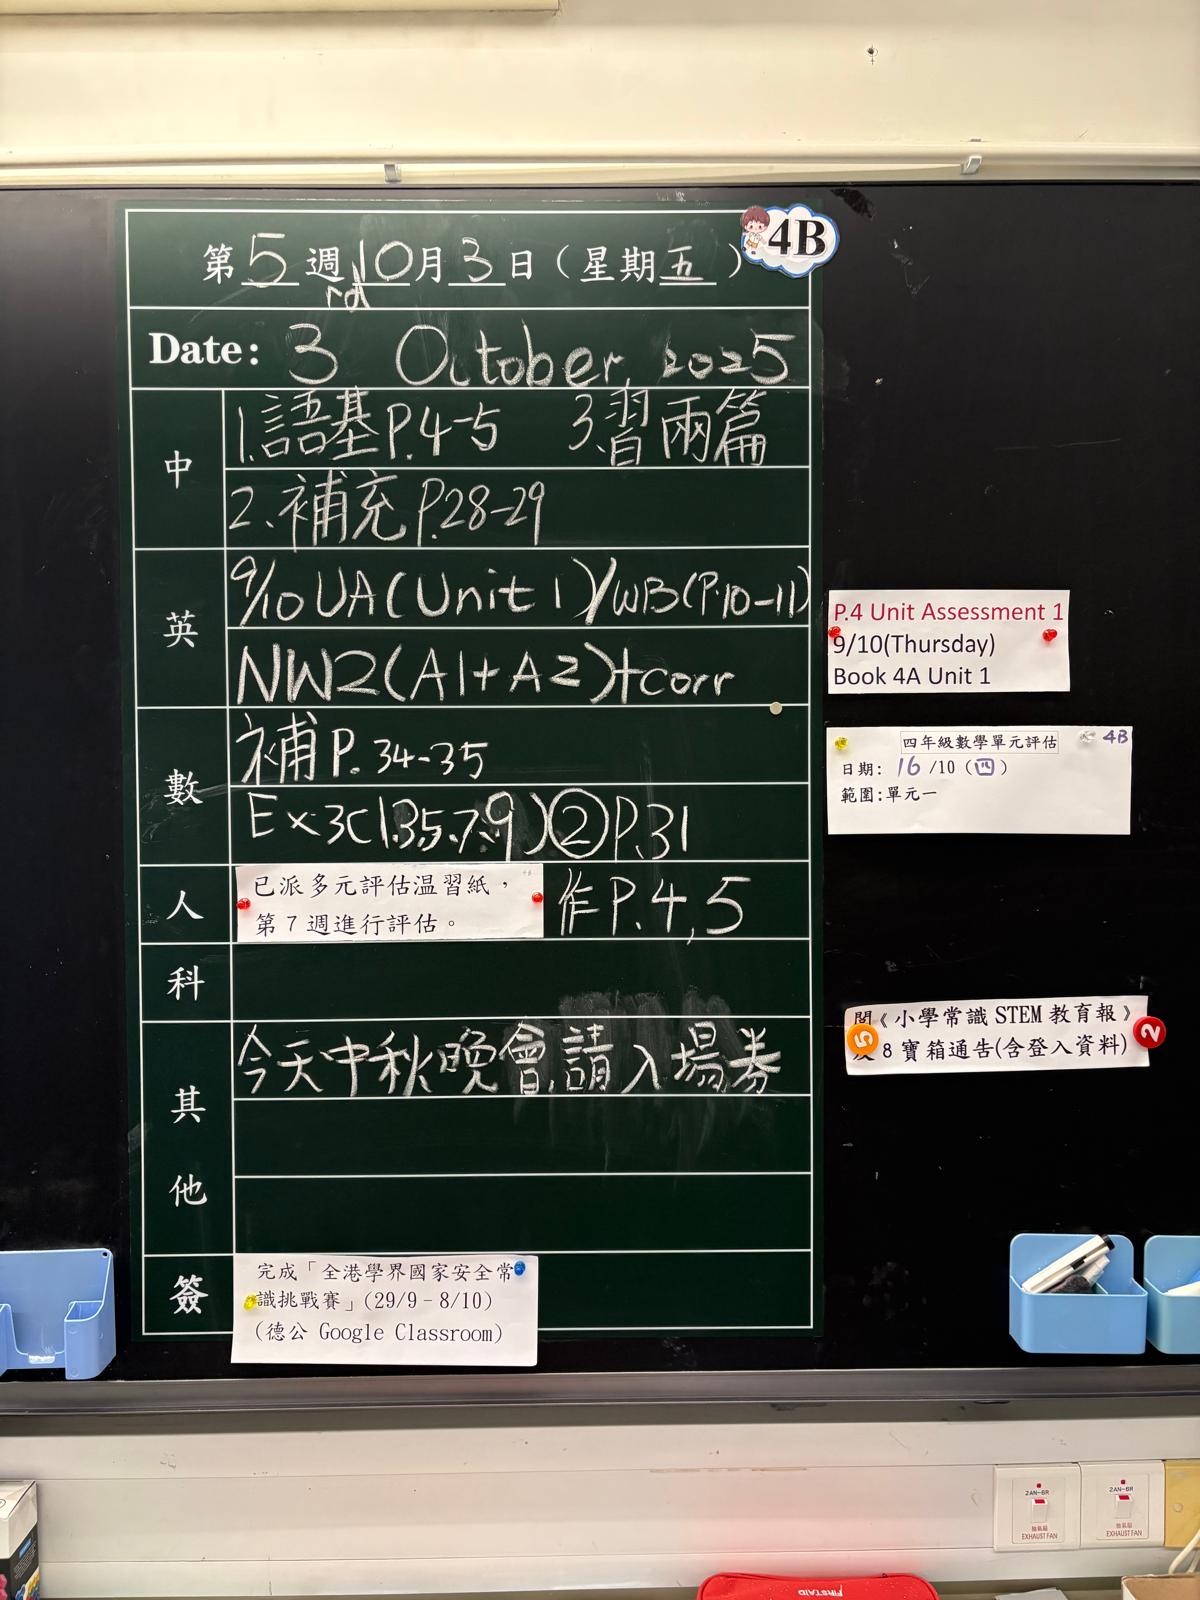 第5週10月3日（星期五）
4B
rd
Date: 3 October, 2025
中
1.語基P.4-5 3.習兩篇
2.補充P.28-29
英
9/10 UA(Unit 1)/WB(P.10-11)
NW2(A1+A2)+corr
數
補P.34-35
Ex.3C(1,3,5,7,9)②P.31
人
已派多元評估温習紙，
第7週進行評估。
作P.4,5
科
其他
今天中秋晚會,請入場券
簽
完成「全港學界國家安全常
識挑戰賽」(29/9–8/10)
(德公 Google Classroom)
P.4 Unit Assessment 1
9/10(Thursday)
Book 4A Unit 1
四年級數學單元評估 4B
日期: 16/10 (四)
範圍:單元一
閱《小學常識 STEM 教育報》
8 寶箱通告(含登入資料)
5
2
2AN-6R
抽氣扇
EXHAUST FAN
2AN-6R
抽氣扇
EXHAUST FAN
FIRST AID